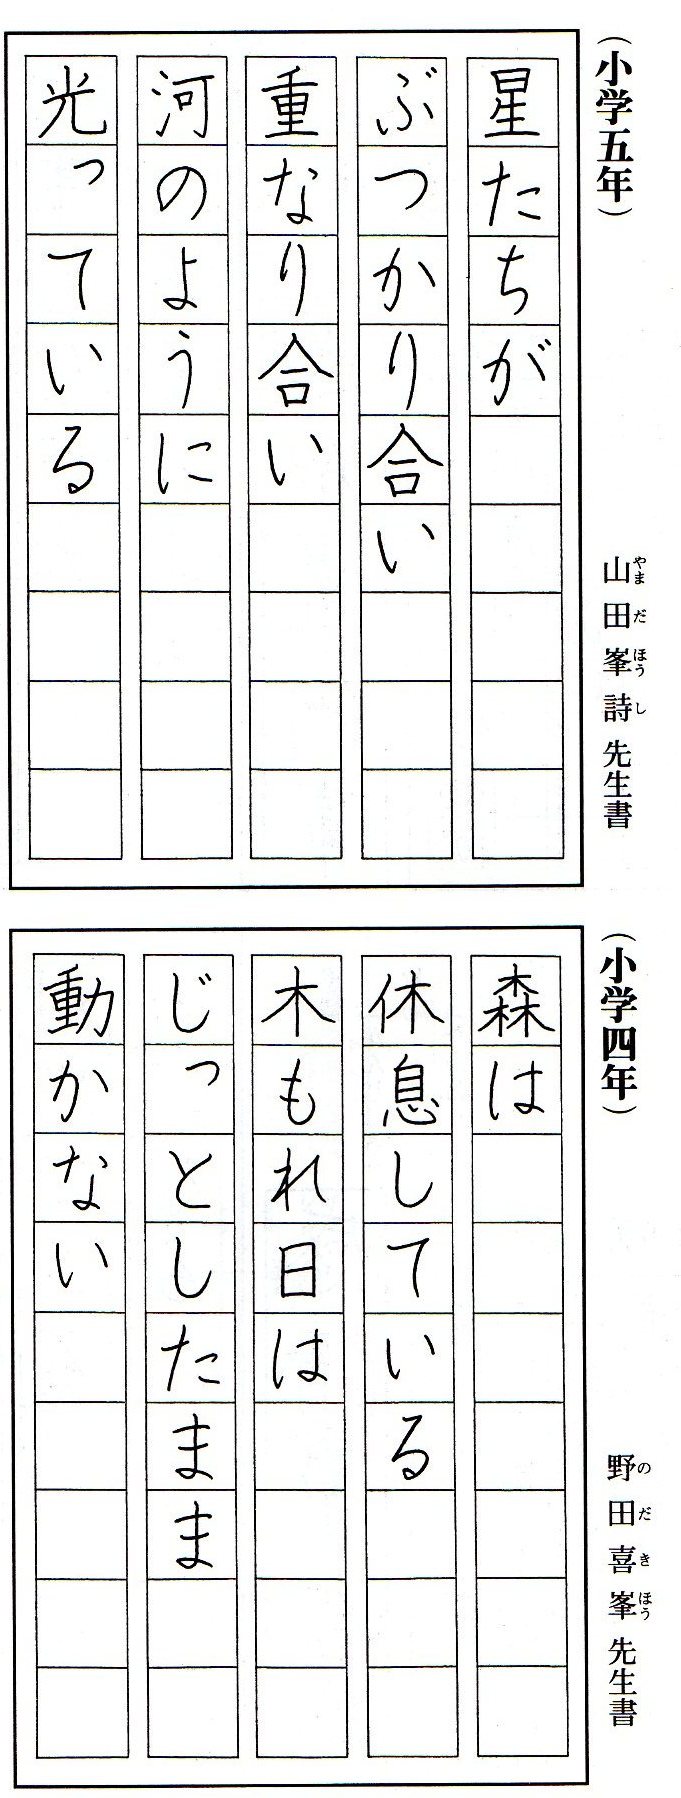 （小学五年）
山田峯詩先生書
やまだほうし
星たちが
ぶつかり合い
重なり合い
河のように
光っている
（小学四年）
野田喜峯先生書
のだきほう
森は
休息している
木もれ日は
じっとしたまま
動かない